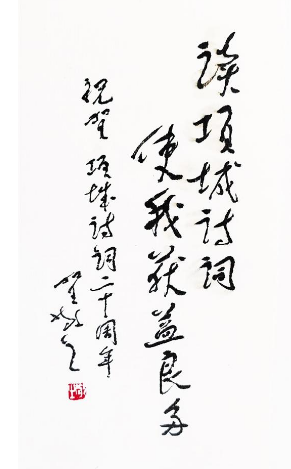 读项城诗词
使我获益良多
祝贺 项城诗词二十周年